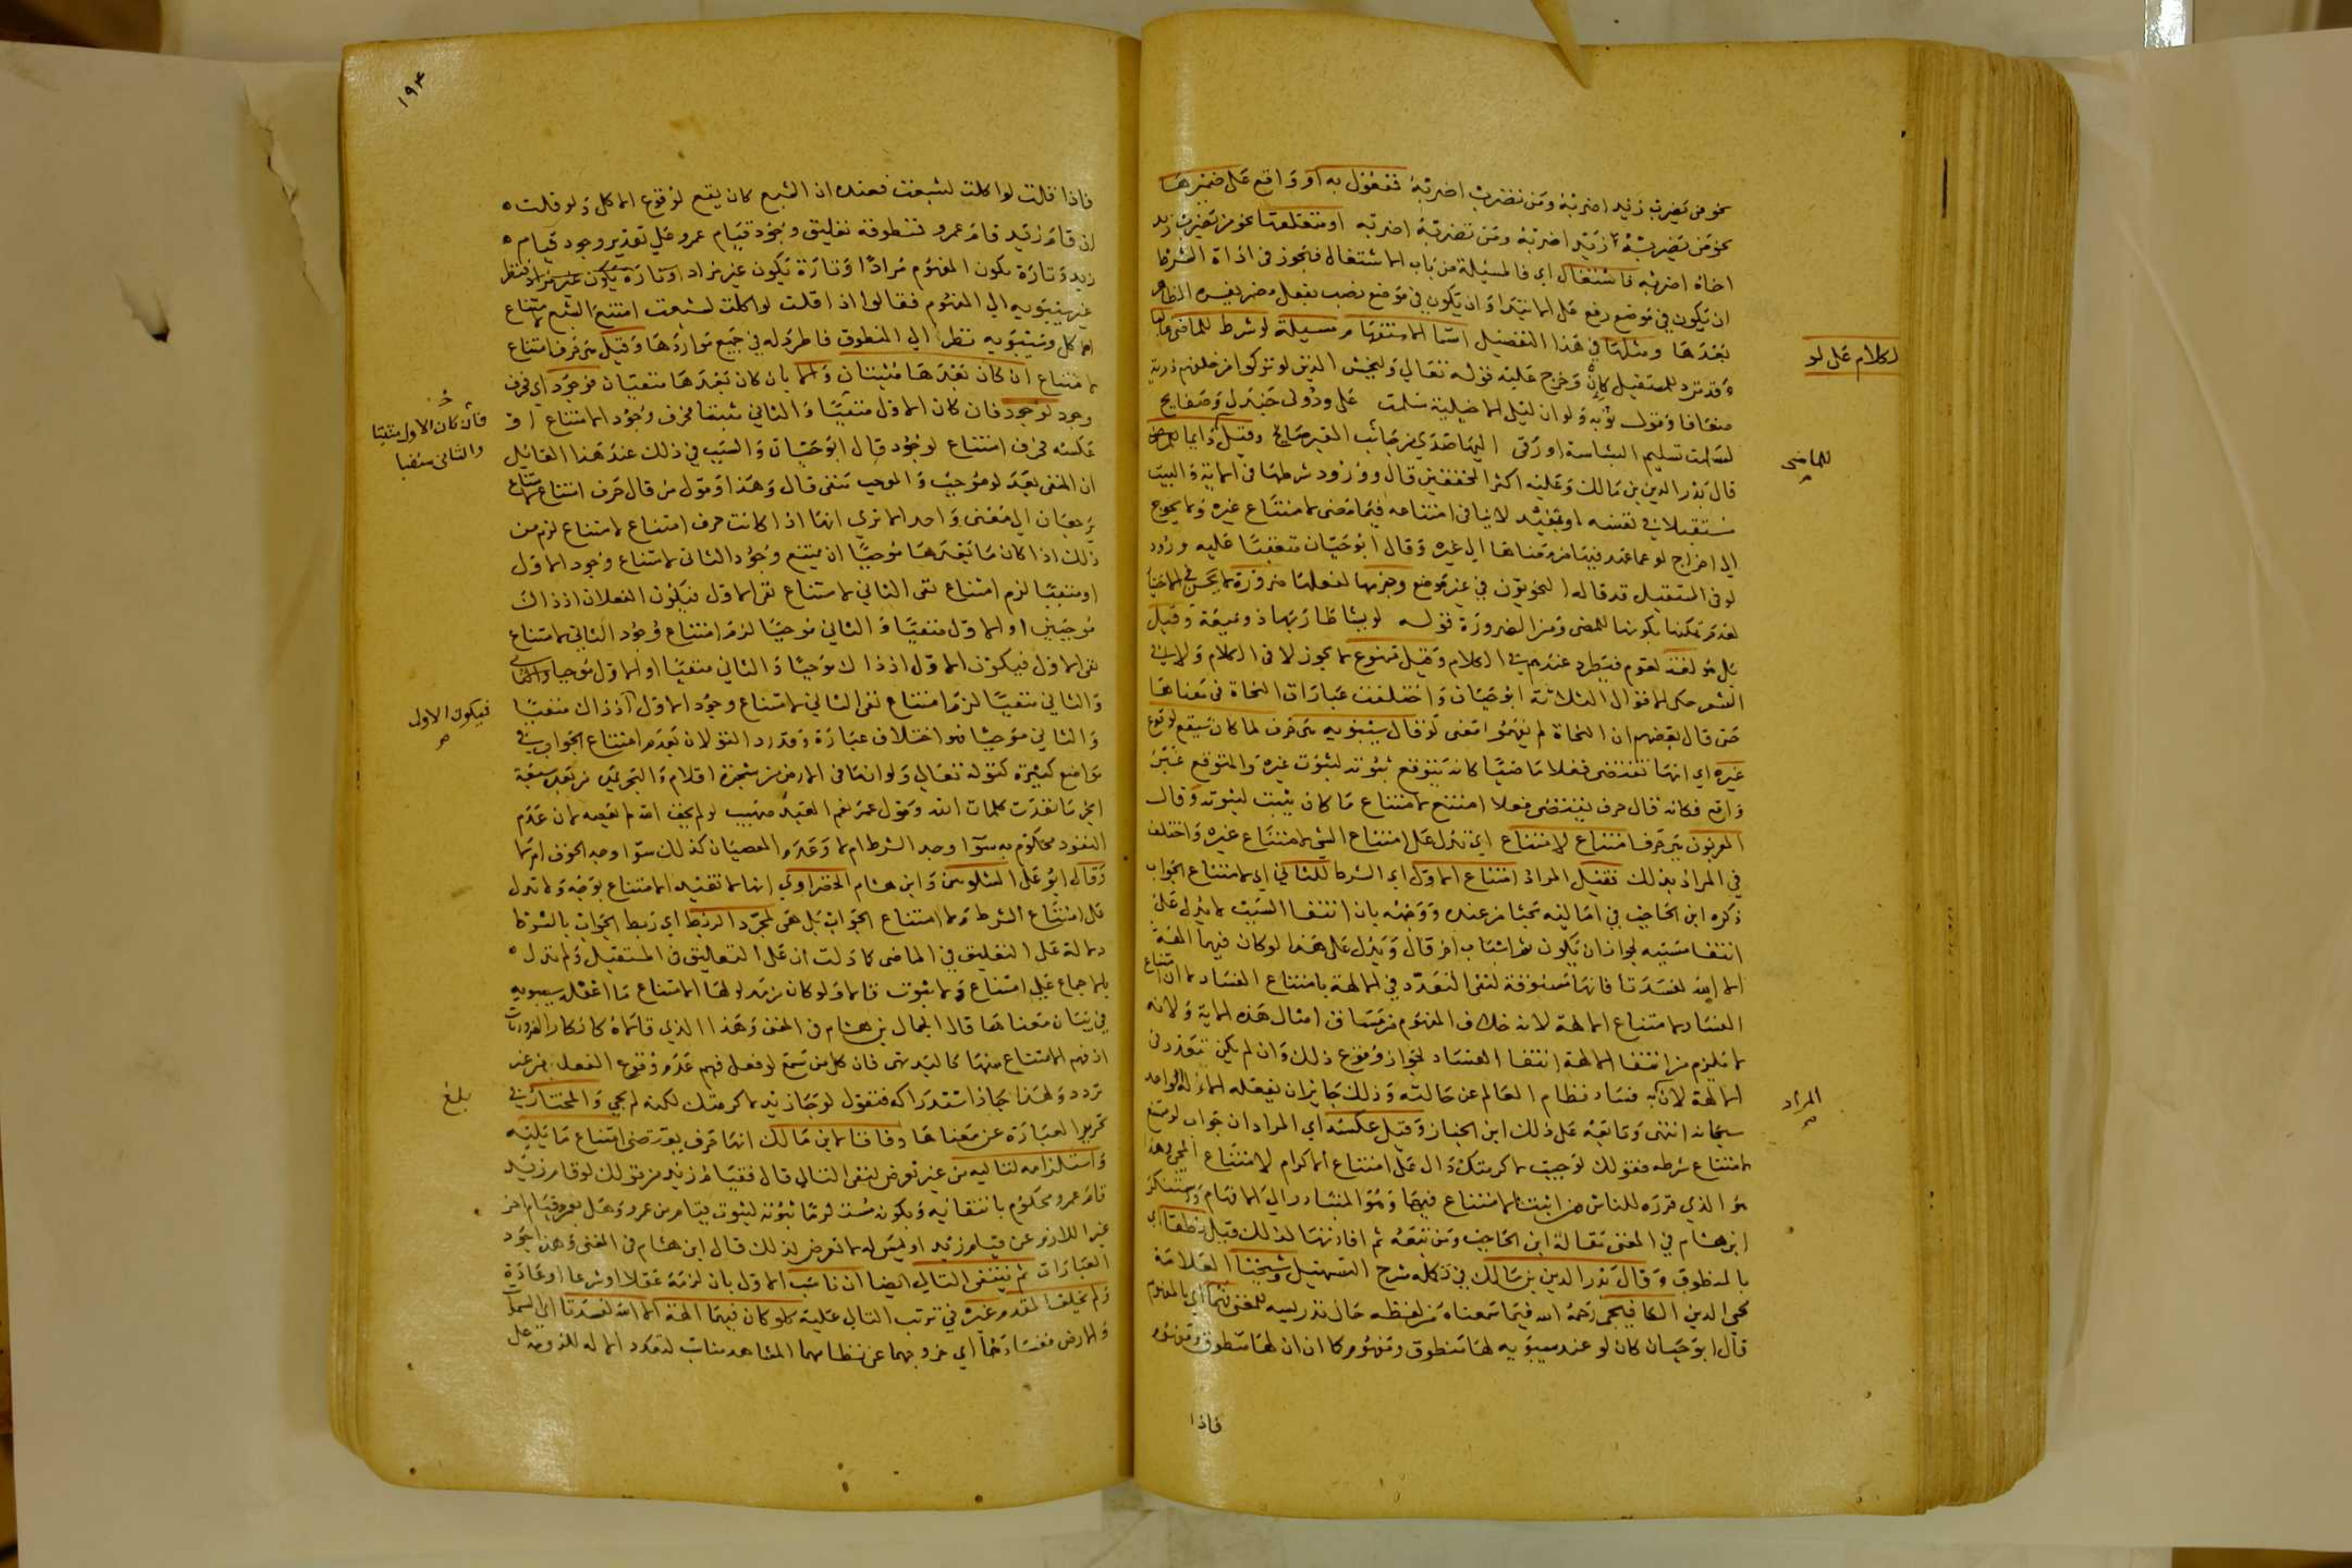 نحو من يضرب زيد اضربه ومن تضرب اضربه فمفعول به او واقع على ضميرها
نحو من يضربه زيد اضربه ومن تضربه اضربه او متعلقها نحو من تضرب زيد
اخاه اضربه فاشتغال اي فالمسيلة من باب الاشتغال فيجوز في اداة الشرط
ان يكون في موضع رفع على الابتدا وان يكون في موضع نصب بفعل مضمر يفسره الظاهر
بعدها ومثلها في هذا التفصيل اسما الاستفهام مسيلة لو شرط للماضي غالبا
الكلام على لو
وقد ترد للمستقبل كان وخرج عليه قوله تعالى وليخش الذين لو تركوا من خلفهم ذرية
ضعافا وقول توبه ولو ان ليلى الاخيلية سلمت على ودوني جندل وصفايح
لسلمت تسليم البشاشة او زقى اليها صدى من جانب القبر صايح وقيل دايما
للماضي
قال بدر الدين بن مالك وعليه اكثر المحققين قال وورود شرطها في الاية والبيت
مستقبلا في نفسه او بقيد لا ينافي امتناعه فيما مضى لامتناع غيره ولا يحوج
الى اخراج لو عما عهد فيها من معناها الى غيره وقال ابو حيان متعقبا عليه ورود
لو في المستقبل قد قاله النحويون في غير موضع وجزمها لفعلها ضرورة
لعدم تمكنها بكونها للمضي ومن الضرورة قوله لو يشا طار بها ذو ميعة وقيل
بل هو لغة لقوم فيطرد عندهم في الكلام وقيل ممنوع لا يجوز لا في الكلام ولا في
الشعر حكى الاقوال الثلاثة ابو حيان واختلفت عبارات النحاة في معناها
حتى قال بعضهم ان النحاة لم يفهموا معنى لو فقال سيبويه هي حرف لما كان سيقع لوقوع
غيره اي انها تقتضي فعلا ماضيا كان يتوقع ثبوته لثبوت غيره والمتوقع غير
واقع فكانه قال حرف يقتضي فعلا امتنع لامتناع ما كان يثبت لثبوته وقال
المعربون حرف امتناع لامتناع اي تدل على امتناع الشي لامتناع غيره واختلف
في المراد بذلك فقيل المراد امتناع الاول اي الشرط للثاني اي لامتناع الجواب
ذكره ابن الحاجب في اماليه بحثا من عنده ووجهه بان انتفا السبب لا يدل على
انتفا مسببه لجواز ان يكون ثم اسباب اخر قال ويدل على هذا لو كان فيهما الهة
الا الله لفسدتا فانها مسوقة لنفي التعدد في الالهة بامتناع الفساد لا ان امتناع
الفساد لامتناع الالهة لانه خلاف المفهوم من سياق امثال هذه الاية ولانه
لا يلزم من انتفا الالهة انتفا الفساد لجواز وقوع ذلك وان لم يكن تعدد في
الالهة لان به فساد نظام العالم عن حالته وذلك جايز ان يفعله الاله الواحد
المراد
سبحانه انتهى وتابعه على ذلك ابن الخباز وقيل عكسه اي المراد ان جواب لو ممتنع
لامتناع شرطه فقولك لو جيت لاكرمتك دال على امتناع الاكرام لامتناع المجي وهذا
هو الذي قرره للناس من اثبت الامتناع فيهما وهو المتبادر الى الافهام واستنكر
ابن هشام في المغني مقالة ابن الحاجب ومن تبعه ثم افادتها لذلك قيل نطقا اي
بالمنطوق وقال بدر الدين بن مالك في تكمله شرح التسهيل وشيخنا العلامة
محيي الدين الكافيجي رحمه الله فيما سمعناه من لفظه حال تدريسه للمغني فهما اي بالمفهوم
قال ابو حيان كان لو عند سيبويه لها منطوق ومفهوم كما ان ان لها منطوق ومفهوم
فاذا
١٩٤
فاذا قلت لو اكلت لشبعت فعنده ان الشبع كان يقع لوقوع الاكل ولو قلت
ان قام زيد قام عمرو فمنطوقه تعليق وجود قيام عمرو على تقدير وجود قيام
زيد وتارة يكون المفهوم مرادا وتارة يكون غير مراد فنظر
غير سيبويه الى المفهوم فقالوا اذا قلت لو اكلت لشبعت امتنع الشبع لامتناع
الاكل وسيبويه نظر الى المنطوق فاطرد له في جميع مواردها وقيل هي حرف امتناع
لامتناع ان كان بعدها مثبتان والا بان كان بعدها منفيان فوجود اي حرف
وجود لوجود فان كان الاول منفيا والثاني مثبتا فحرف وجود الامتناع او
فان كان الاول مثبتا
والثاني منفيا
عكسه فحرف امتناع لوجود قال ابو حيان والسبب في ذلك عند هذا القائل
ان المنفي بعد لو موجب والموجب منفي قال وهذا وقول من قال حرف امتناع لامتناع
يرجعان الى معنى واحد الا ترى انها اذا كانت حرف امتناع لامتناع لزم من
ذلك اذا كان ما بعدها موجبا ان يمتنع وجود الثاني لامتناع وجود الاول
او منفيا لزم امتناع نفي الثاني لامتناع نفي الاول فيكون الفعلان اذ ذاك
موجبين او الاول منفيا والثاني موجبا لزم امتناع وجود الثاني لامتناع
نفي الاول فيكون الاول اذ ذاك موجبا والثاني منفيا او الاول موجبا
والثاني منفيا لزم امتناع نفي الثاني لامتناع وجود الاول اذ ذاك منفيا
فيكون الاول
والثاني موجبا فهو اختلاف عبارة وقد رد القولان بعدم امتناع الجواب في
مواضع كثيرة كقوله تعالى ولو انما في الارض من شجرة اقلام والبحر يمده من بعده سبعة
ابحر ما نفدت كلمات الله وقول عمر نعم العبد صهيب لو لم يخف الله لم يعصه لان عدم
النفود محكوم به سوا وجد الشرط ام لا وعدم العصيان كذلك سوا وجد الخوف ام لا
وقال ابو علي الشلوبين وابن هشام الخضراوي انها لا تفيد الامتناع بوجه ولا تدل
على امتناع الشرط ولا امتناع الجواب بل هي لمجرد الربط اي ربط الجواب بالشرط
دالة على التعليق في الماضي كما دلت ان على التعليق في المستقبل ولم تدل
بالاجماع على امتناع ولا ثبوت قالا ولو كان مدلولها الامتناع ما اغفله سيبويه
في بيان معناها قال الجمال بن هشام في المغني وهذا الذي قالاه كانكار الضروريات
اذ فهم الامتناع منها كالبديهي فان كل من سمع لو فعل فهم عدم وقوع الفعل من غير
تردد ولهذا جاز استدراكه فتقول لو جا زيد لاكرمتك لكنه لم يجي والمختار في
بلغ
تحرير العبارة عن معناها وفاقا لابن مالك انها حرف يقتضي امتناع ما يليه
واستلزامه لتاليه من غير تعرض لنفي التالي قال فقيام زيد من قولك لو قام زيد
قام عمرو محكوم بانتفائه وبكونه مستلزما ثبوته لثبوت قيام من عمرو وهل لعمرو قيام اخر
غير اللازم عن قيام زيد او ليس له لا تعرض لذلك قال ابن هشام في المغني وهذا اجود
العبارات ثم ينتفي التالي ايضا ان ناسب الاول بان لزمه عقلا او شرعا او عادة
ولم يخلف المقدم غيره في ترتب التالي عليه كلو كان فيهما الهة الا الله لفسدتا اي السما
والارض ففسادهما اي خروجهما عن نظامهما المشاهد مناسب لتعدد الاله للزومه على